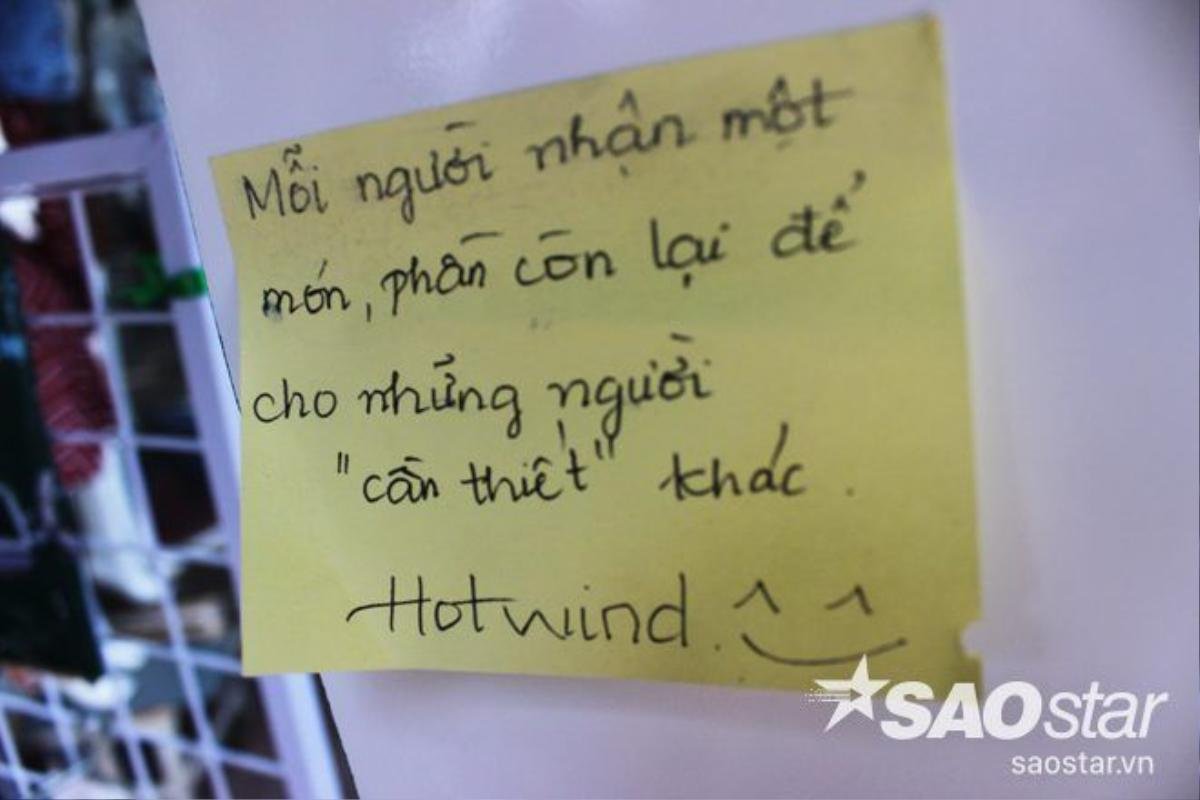 Mỗi người nhận một
món, phần còn lại để
cho những người
"cần thiết" khác.
Hotwind. ^‿^
SAOstar
saostar.vn